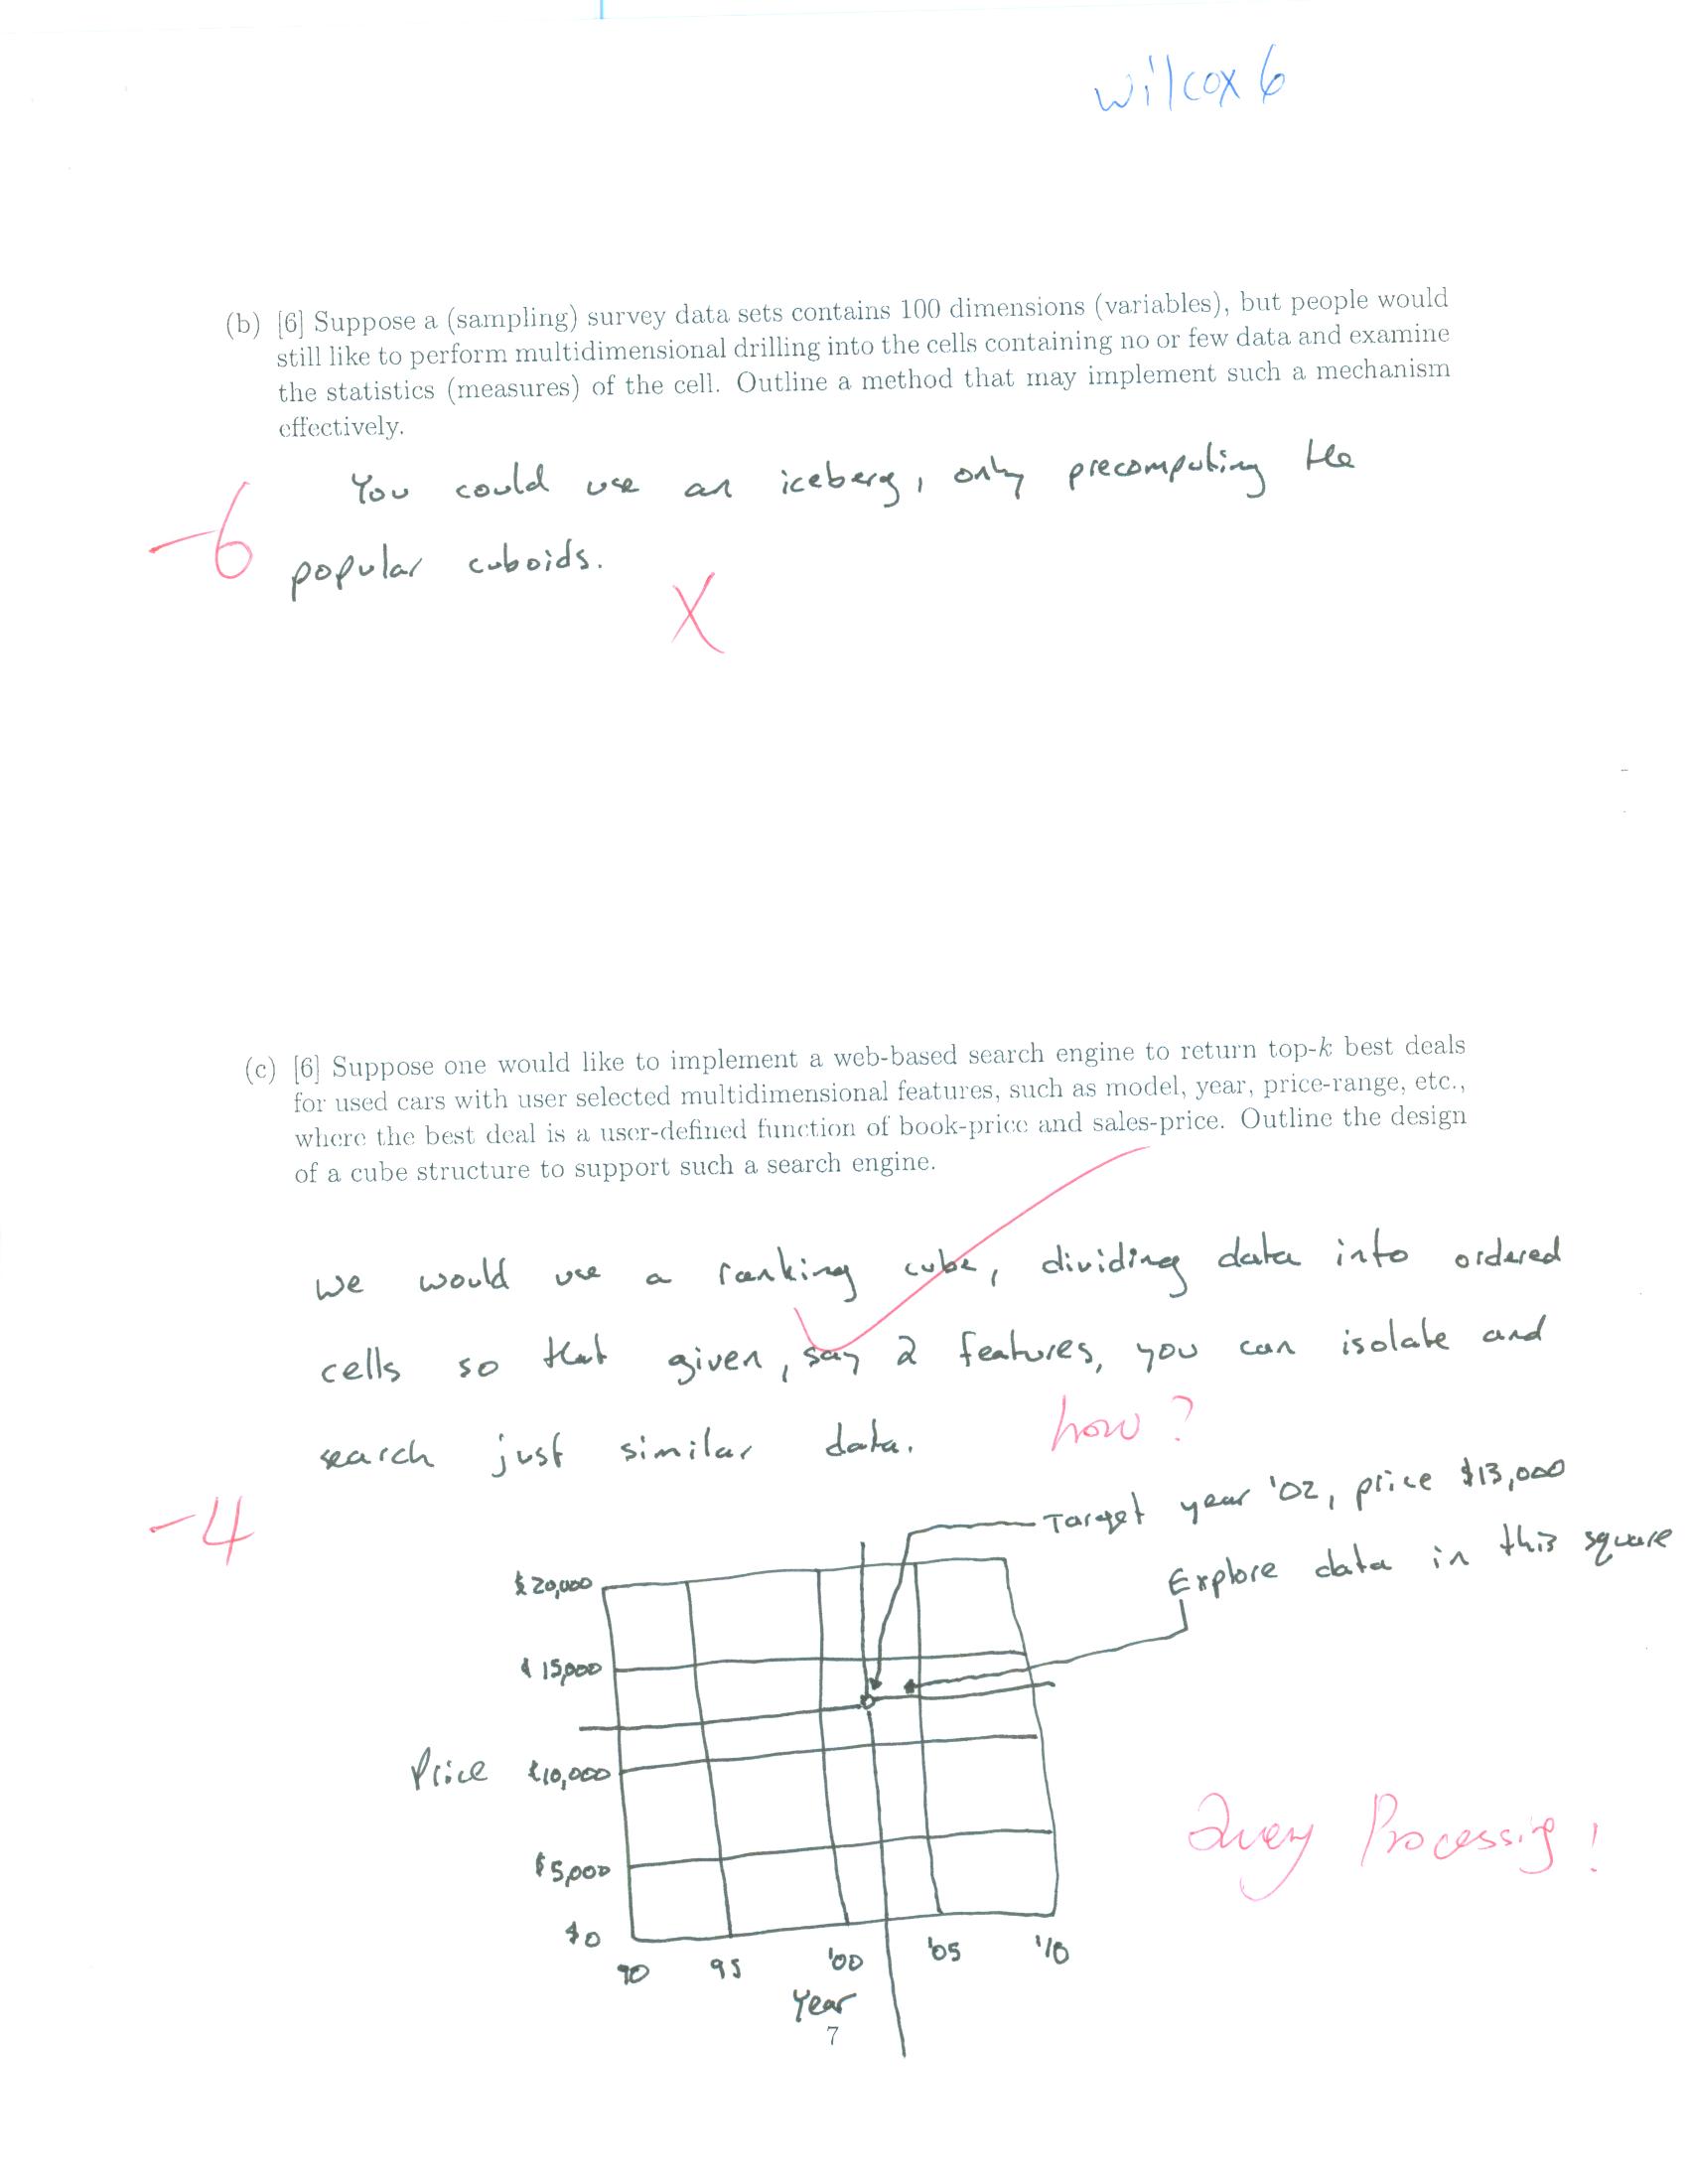 wilcox 6
(b) [6] Suppose a (sampling) survey data sets contains 100 dimensions (variables), but people would
still like to perform multidimensional drilling into the cells containing no or few data and examine
the statistics (measures) of the cell. Outline a method that may implement such a mechanism
effectively.
You could use an iceberg, only precomputing the
-6
popular cuboids.
X
(c) [6] Suppose one would like to implement a web-based search engine to return top-k best deals
for used cars with user selected multidimensional features, such as model, year, price-range, etc.,
where the best deal is a user-defined function of book-price and sales-price. Outline the design
of a cube structure to support such a search engine.
we would use a ranking cube, dividing data into ordered
cells so that given, say 2 features, you can isolate and
search just similar data.
how?
-4
Target year '02, price $13,000
Explore data in this square
$20,000
$15,000
Price $10,000
$5,000
$0
90 95 '00 '05 '10
Year
Query Processing!
7